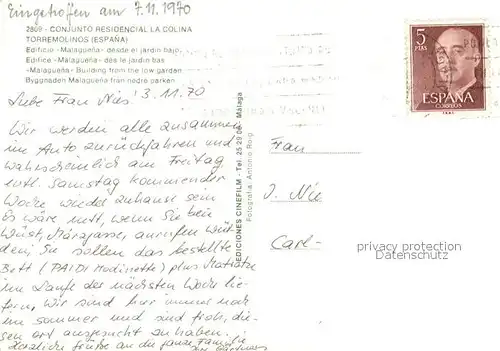 Eingetroffen am 7.11.1970
2809 - CONJUNTO RESIDENCIAL LA COLINA
TORREMOLINOS (ESPAÑA)
Edificio «Malagueña» desde el jardin bajo
Edifice «Malagueña» dès le jardin bas
«Malagueña» Building from the low garden
Byggnaden Malagueña från nedre parken
Liebe Frau Nies! 3.11.70
Wir werden alle zusammen
im Auto zurückfahren und
wahrscheinlich am Freitag
evtl. Samstag kommender
Woche wieder zuhause sein
Es wäre nett, wenn Sie bei
Wüst, anrufen
den, Sie sollen das bestellte
Bett (PAIDI Modinette) plus Matratze
im Laufe der nächsten Woche lie-
fern. Wir sind hier immer noch
im sommer und sind froh, die-
sen ort ausgesucht zu haben.
Herzliche Grüße an die ganze Familie
EDICIONES CINEFILM - Tel. 25 29 66 - Málaga
Fotografía: Antonio Roig
5
PTAS
ESPAÑA
CORREOS
Frau
Carl-
privacy protection
Datenschutz